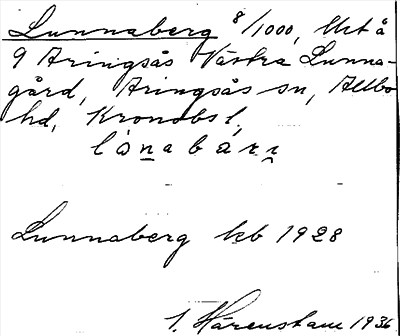 Lunnaberg 8/1000, Urt å
9 Aringsås Västra Lunna-
gård, Aringsås sn, Allbo
hd, Kronobs l,
lo̊nabärɪ
Lunnaberg kb 1928
I. Härenstam 1936